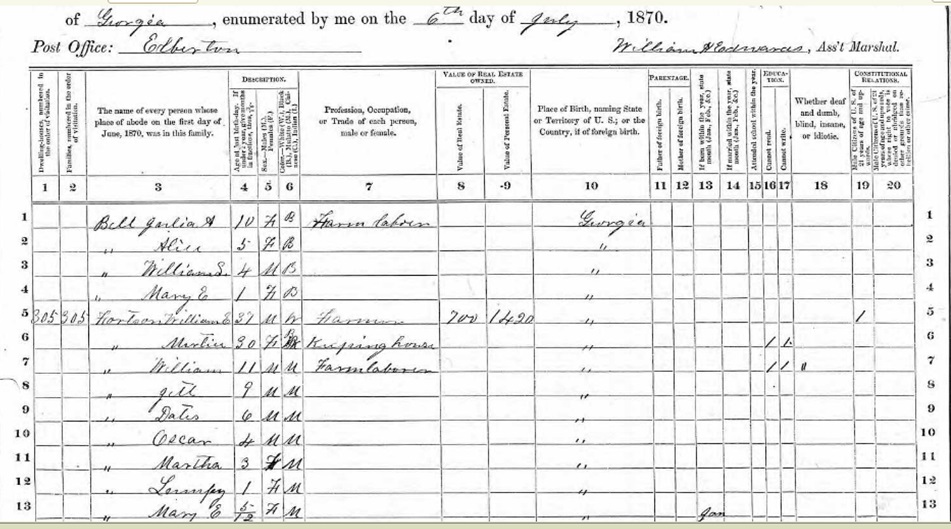 of Georgia, enumerated by me on the 6th day of July, 1870.
Post Office: Elberton
William H Edwards, Ass't Marshal.
Dwelling-houses, numbered in the order of visitation.
Families, numbered in the order of visitation.
The name of every person whose place of abode on the first day of June, 1870, was in this family.
DESCRIPTION.
Age at last birth-day. If under 1 year, give months in fractions, thus, 3/12.
Sex.—Males (M.), Females (F.)
Color.—White (W.), Black (B.), Mulatto (M.), Chinese (C.), Indian (I.)
Profession, Occupation, or Trade of each person, male or female.
VALUE OF REAL ESTATE OWNED.
Value of Real Estate.
Value of Personal Estate.
Place of Birth, naming State or Territory of U. S.; or the Country, if of foreign birth.
PARENTAGE.
Father of foreign birth.
Mother of foreign birth.
If born within the year, state month (Jan., Feb., &c.)
If married within the year, state month (Jan., Feb., &c.)
Attended school within the year.
EDUCATION.
Cannot read.
Cannot write.
Whether deaf and dumb, blind, insane, or idiotic.
CONSTITUTIONAL RELATIONS.
Male Citizens of U. S. of 21 years of age and upwards.
1 2 3 4 5 6 7 8 -9 10 11 12 13 14 15 16 17 18 19 20
1 Bell Julia A 10 F B Farm laborer Georgia 1
2 " Alice 5 F B " 2
3 " William S. 4 M B " 3
4 " Mary E 1 F B " 4
5 305 305 Fortson William E 37 M W Farmer 700 1420 " 1 5
6 " 30 F Keeping house " 1 1 6
7 " William 11 M M Farm laborer " 1 1 " 7
8 " 9 M M " 8
9 " 6 M M " 9
10 " Oscar 4 M M " 10
11 " Martha 3 F M " 11
12 " 1 F M " 12
13 " Mary E 5/12 F M " Jan 13